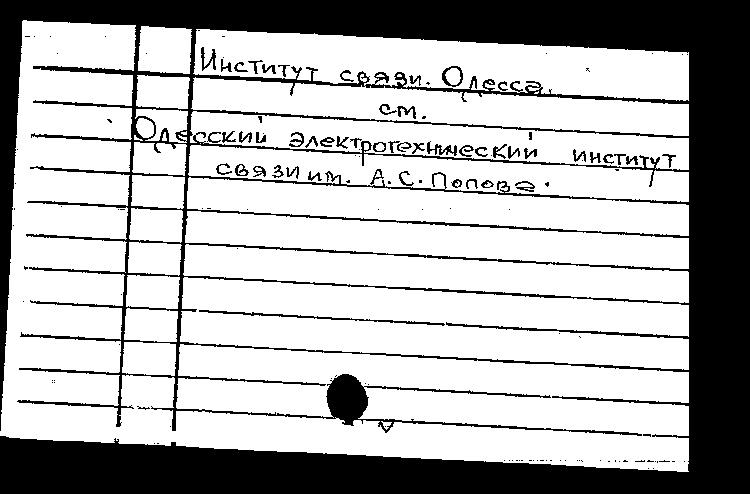 Институт связи. Одесса.
см.
Одесский электротехнический институт
связи им. А.С. Попова.